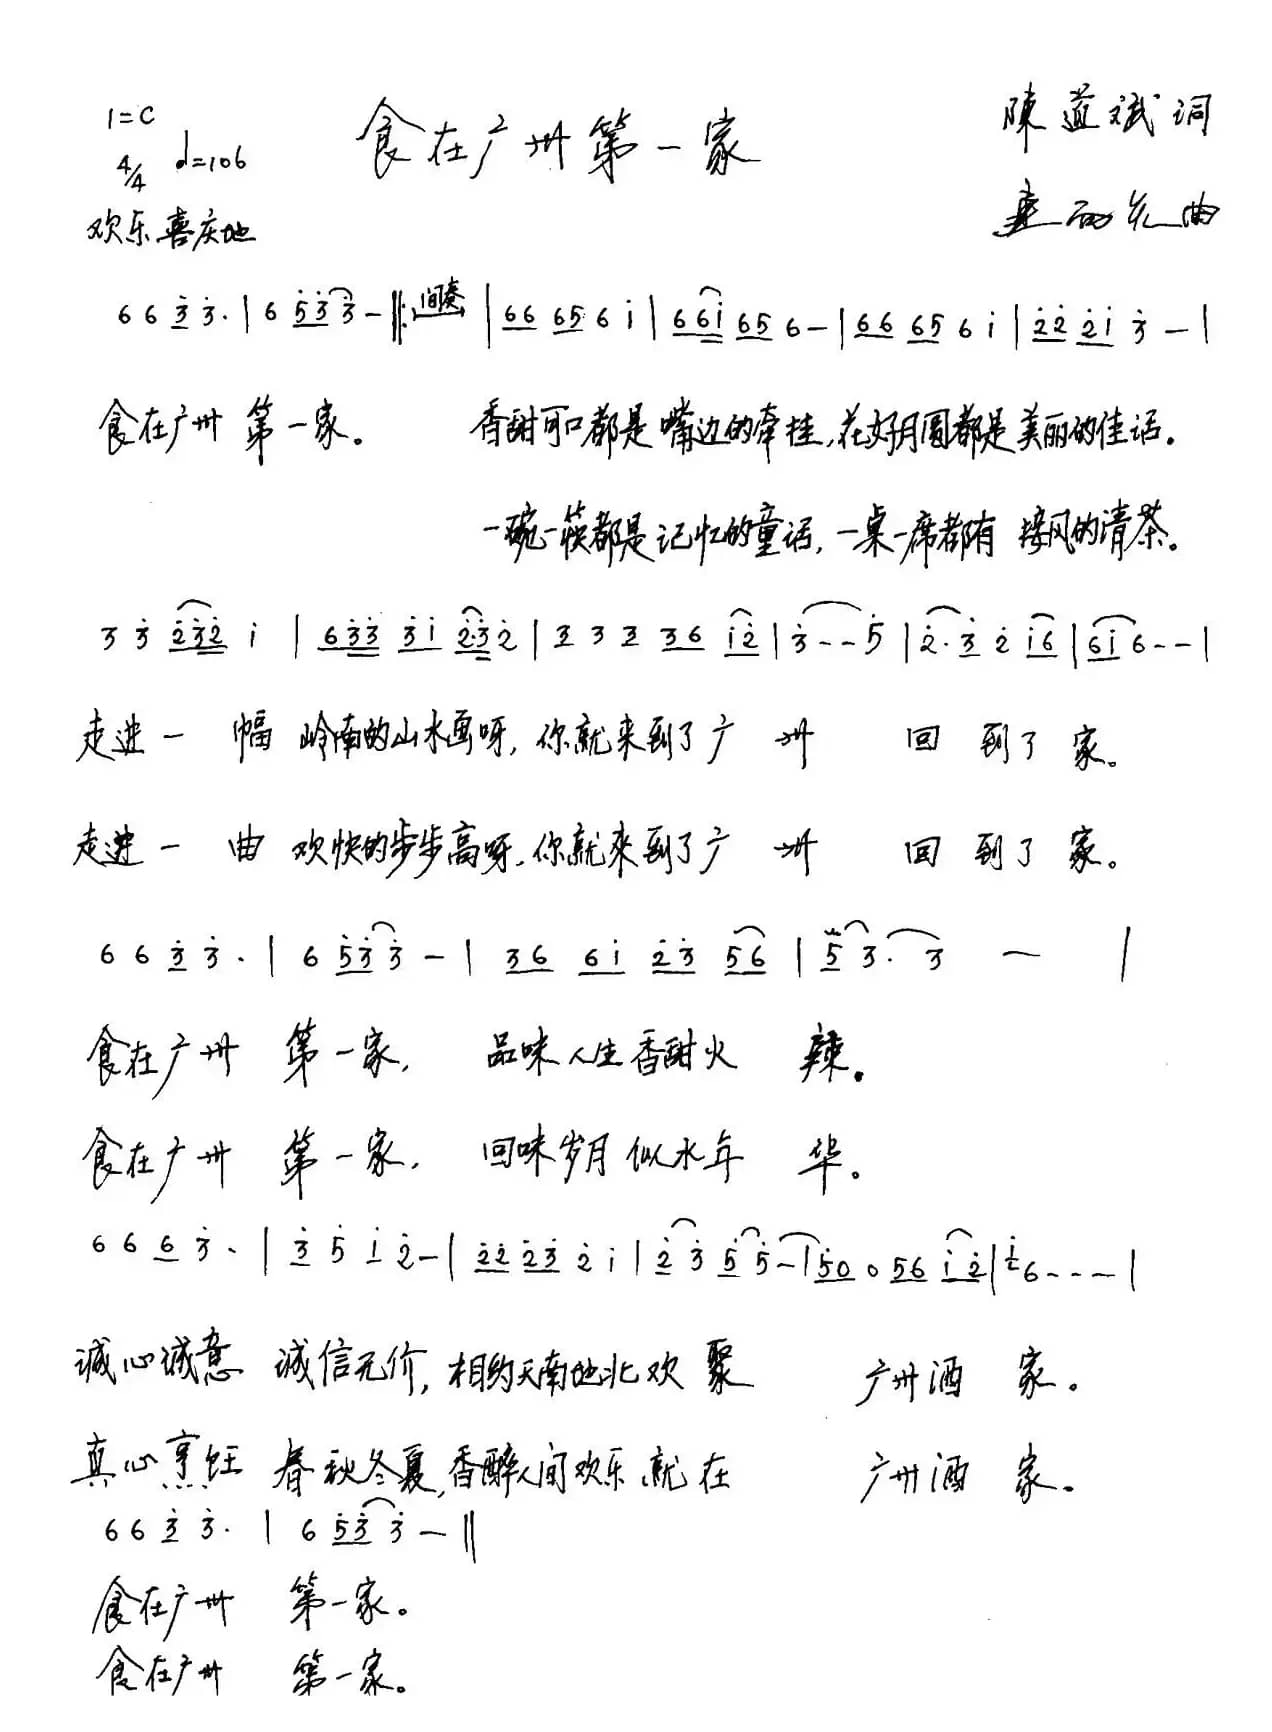 1=C
食在广州第一家
陳道斌词
4/4 ♩=106
欢乐喜庆地
曲
6 6 3̇ 3̇· | 6 5̇3̇ 3̇ - ‖: 间奏 | 66 65 6 i | 66i 65 6 - | 66 65 6 i | 2̇2̇ 2̇i 3̇ - |
食在广州 第一家。 香甜可口都是嘴边的牵挂,花好月圆都是美丽的佳话。
一碗一筷都是记忆的童话,一桌一席都有 接风的清茶。
3 3̇ 2̇3̇2̇ i | 63̇3̇ 3̇i 2̇·3̇2̇ | 3 3 3 36 i2̇ | 3̇ - - 5̇ | 2̇·3̇ 2̇ i6 | 6i 6 - - |
走进一 幅 岭南的山水画呀,你就来到了广 州 回 到了 家。
走进一 曲 欢快的步步高呀,你就來到了广 州 回 到了 家。
6 6 3̇ 3̇· | 6 5̇3̇ 3̇ - | 36 6i 2̇3̇ 56 | 5 3· 3 - |
食在广州 第一家, 品味人生香甜火 辣。
食在广州 第一家, 回味岁月似水年 华。
6 6 6 3̇· | 3̇ 5̇ i 2̇ - | 2̇2̇ 2̇3̇ 2̇ i | 2̇ 3̇ 5̇ 5̇ - | 5̇0 0 56 i2̇ | 6 - - - |
诚心诚意 诚信无价,相约天南地北欢 聚 广州酒 家。
真心烹饪 春秋冬夏,香醉人间欢乐就在 广州酒 家。
6 6 3̇ 3̇· | 6 5̇3̇ 3̇ - ‖
食在广州 第一家。
食在广州 第一家。